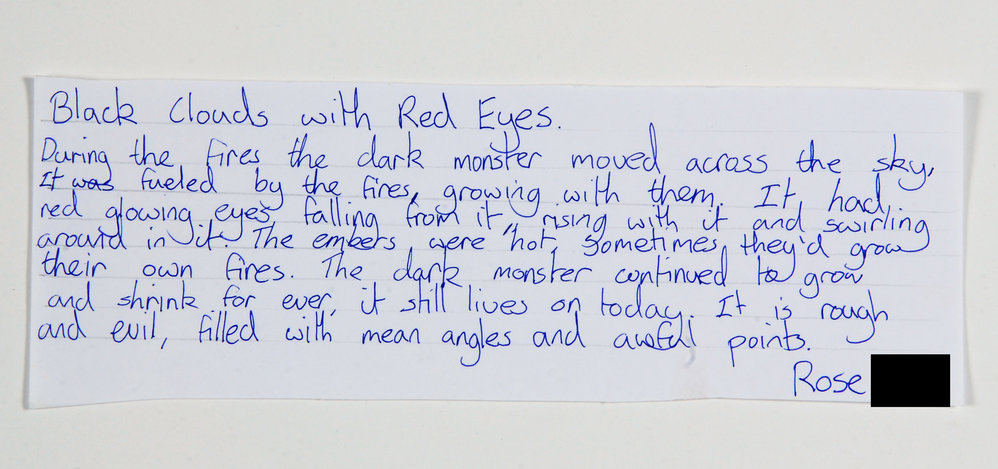 Black Clouds with Red Eyes.
During the fires the dark monster moved across the sky,
It was fueled by the fires, growing with them. It had
red glowing eyes, falling from it, rising with it and swirling
around in it. The embers were hot, sometimes they'd grow
their own fires. The dark monster continued to grow
and shrink for ever, it still lives on today. It is rough
and evil, filled with mean angles and awful points.
Rose